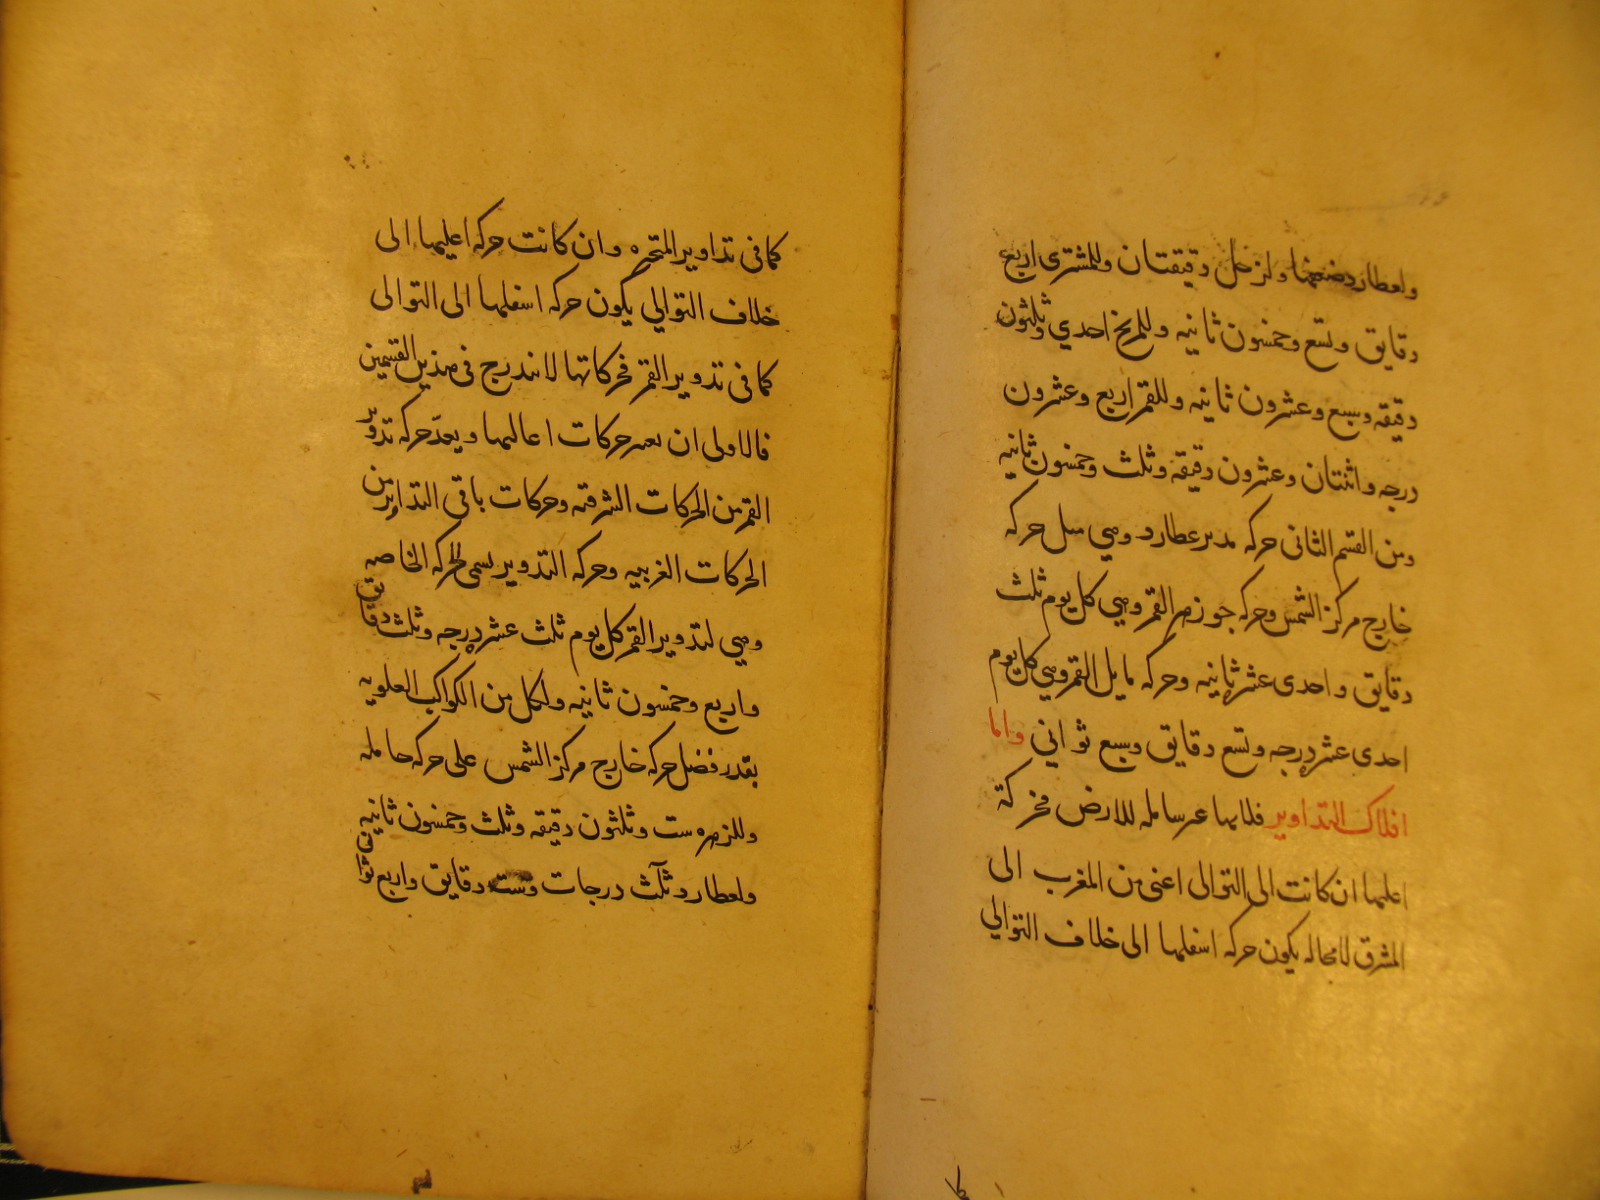 ولعطارد ضعفها ولزحل دقيقتان وللمشتري اربع
دقايق وتسع وخمسون ثانيه وللمريخ احدي وثلثون
دقيقه وسبع وعشرون ثانيه وللقمر اربع وعشرون
درجه واثنتان وعشرون دقيقه وثلث وخمسون ثانيه
ومن القسم الثانى حركه مدير عطارد وهي مثل حركه
خارج مركز الشمس وحركه جوزهر القمر وهي كل يوم ثلث
دقايق واحدى عشر ثانيه وحركه مايل القمر وهي كل يوم
احدى عشر درجه وتسع دقايق وسبع ثواني واما
افلاك التداوير فلانها غير شامله للارض فحركة
اعليها ان كانت الى التوالى اعنى من المغرب الى
المشرق لا محاله يكون حركه اسفلها الى خلاف التوالي
كما فى تداوير المتحيره وان كانت حركه اعليها الى
خلاف التوالي يكون حركه اسفلها الى التوالى
كما فى تدوير القمر فحركاتها لا تندرج فى هذين القسمين
فالاولى ان يعتبر حركات اعاليها ويعدّ حركه تدوير
القمر من الحركات الشرقيه وحركات باقى التداوير من
الحركات الغربيه وحركه التدوير يسمى الحركه الخاصه
وهي لتدوير القمر كل يوم ثلث عشر درجه وثلث دقايق
واربع وخمسون ثانيه ولكل من الكواكب العلويه
بقدر فضل حركه خارج مركز الشمس على حركه حامله
وللزهره ست وثلثون دقيقه وثلث وخمسون ثانيه
ولعطارد ثلث درجات وست دقايق واربع ثوان